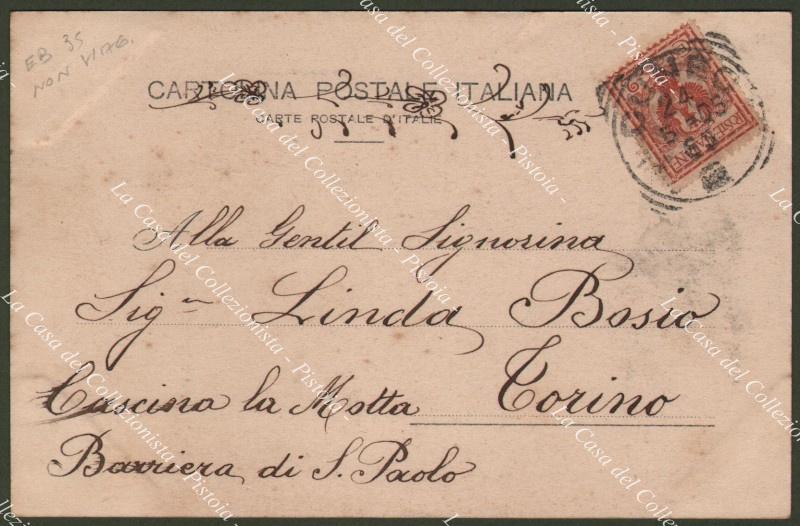 EB 35
NON VIAG.
CARTOLINA POSTALE ITALIANA
CARTE POSTALE D'ITALIE
Alla Gentil Signorina
Sig.na Linda Bosio
Torino
Cascina la Motta
Barriera di S. Paolo
La Casa del Collezionista - Pistoia -